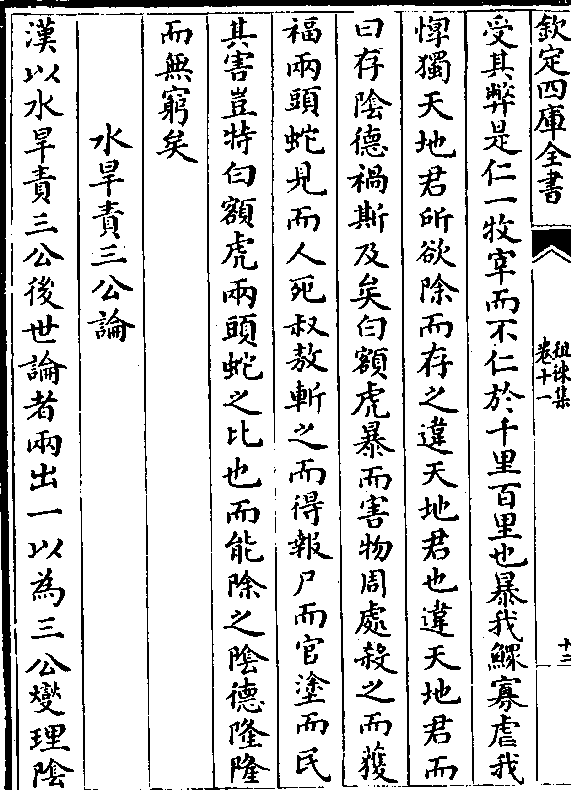 欽定四庫全書
徂徠集
卷十一
十二
受其弊是仁一牧宰而不仁於千里百里也暴我鰥寡虐我
惸獨天地君所欲除而存之違天地君也違天地君而
曰存陰德禍斯及矣白額虎暴而害物周處殺之而獲
福兩頭蛇見而人死叔敖斬之而得報尸而官塗而民
其害豈特白額虎兩頭蛇之比也而能除之陰德隆隆
而無窮矣
水旱責三公論
漢以水旱責三公後世論者兩出一以為三公燮理陰